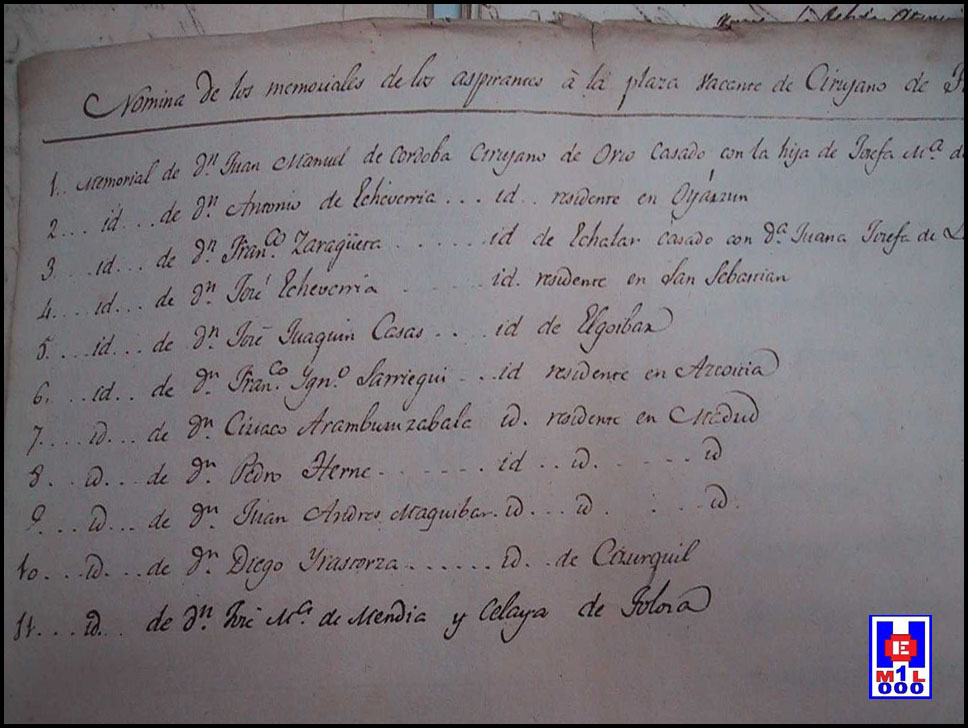 Nomina de los memoriales de los aspirantes à la plaza vacante de Cirujano de
1.. Memorial de Dn. Juan Manuel de Cordoba Cirujano de Orio Casado con la hija de Josefa Mª. de
2... id... de Dn. Antonio de Echeverria... id.. residente en Oyárzun
3... id... de Dn. Franco. Zaragüeta...... id de Echalar casado con Dª. Juana Josefa de
4... id... de Dn. José Echeverria...... id. residente en San Sebastian
5... id... de Dn. José Juaquin Casas.... id de Elgoibar
6... id... de Dn. Franco. Ygno. Sarriegui... id residente en Azcoitia
7... id... de Dn. Ciriaco Aramburuzabala id. residente en Madrid
8.. id... de Dn. Pedro Herne....... id.. id..... id
9... id... de Dn. Juan Andres Maguibar. id... id.... id.
10... id... de Dn. Diego Yrastorza...... id.. de Cizurquil
11... id... de Dn. José Mª. de Mendia y Celaya de Tolosa
H
E
M1L
000